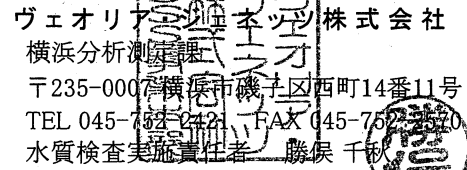 ヴェオリア・ジェネッツ株式会社
横浜分析測定課
〒235-0007 横浜市磯子区西町14番11号
TEL 045-752-2421 FAX 045-752-2570
水質検査実施責任者 勝俣 千秋